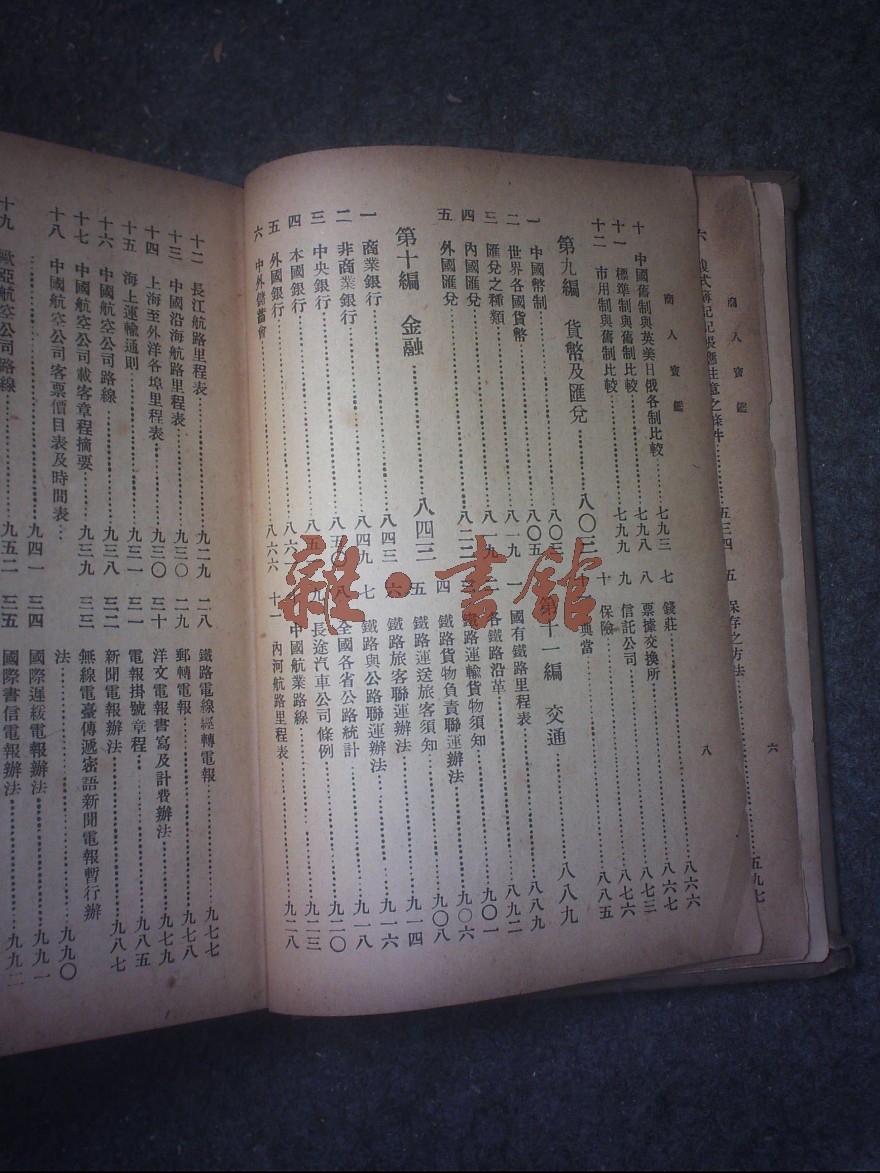 商人寶鑑
十 中國舊制與英美日俄各制比較 七九三
十一 標準制與舊制比較 七九八
十二 市用制與舊制比較 七九九
第九編 貨幣及匯兌 八〇三
一 中國幣制 八〇五
二 世界各國貨幣 八一九
三 匯兌之種類 八一九
四 內國匯兌
五 外國匯兌 八二二
第十編 金融 八四三
一 商業銀行 八四三
二 非商業銀行 八四九
三 中央銀行 八五〇
四 本國銀行
五 外國銀行
六 中外儲蓄會 八六六
七 錢莊 八六六
八 票據交換所 八六七
九 信託公司 八七三
十 保險 八七六
典當 八八五
第十一編 交通 八八九
一 國有鐵路里程表 八八九
二 各鐵路沿革 八九二
三 鐵路運輸貨物須知 九〇一
四 鐵路貨物負責聯運辦法 九〇六
五 鐵路運送旅客須知 九〇八
六 鐵路旅客聯運辦法 九一四
七 鐵路與公路聯運辦法 九一六
八 全國各省公路統計 九一八
九 長途汽車公司條例 九二〇
中國航業路線 九二三
十一 內河航路里程表 九二八
八
十二 長江航路里程表 九二九
十三 中國沿海航路里程表 九三〇
十四 上海至外洋各埠里程表 九三〇
十五 海上運輸通則 九三一
十六 中國航空公司路線 九三八
十七 中國航空公司載客章程摘要 九三九
十八 中國航空公司客票價目表及時間表
九四一
十九 歐亞航空公司路線 九五二
二八 鐵路電線經轉電報 九七七
二九 郵轉電報 九七八
三十 洋文電報書寫及計費辦法 九七九
三一 電報掛號章程 九八五
三二 新聞電報辦法 九八七
三三 無線電臺傳遞密語新聞電報暫行辦
法 九九〇
三四 國際遲緩電報辦法 九九一
三五 國際書信電報辦法 九九二
商人寶鑑
五三四
五 保存之方法 五九七
六
雜·書館